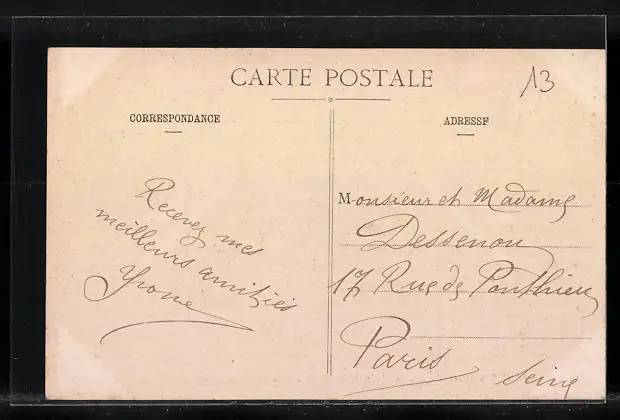 CARTE POSTALE
13
CORRESPONDANCE
ADRESSE
Recevez mes
meilleurs amitiés
Yvonne
Monsieur et Madame
Dessenou
17 Rue de Ponthieu
Paris
Seine